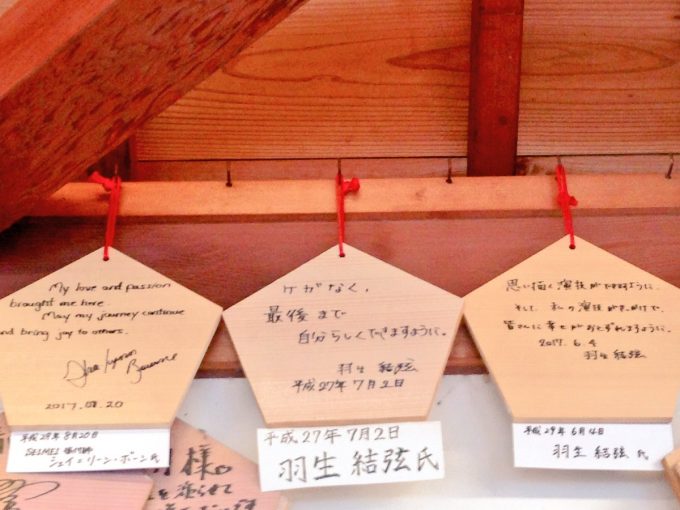 My love and passion
brought me here.
May my journey continue
and bring joy to others.
2017.08.20
平成29年8月20日
SEIMEI 振付師
シェイ=リーン・ボーン氏
ケガなく、
最後まで
自分らしくできますように。
羽生 結弦
平成27年7月2日
平成27年7月2日
羽生 結弦氏
思い描く演技ができますように。
そして、私の演技がきっかけで、
皆さんに幸せがおとずれますように。
2017.6.4
羽生結弦
平成29年6月4日
羽生 結弦 氏
様。